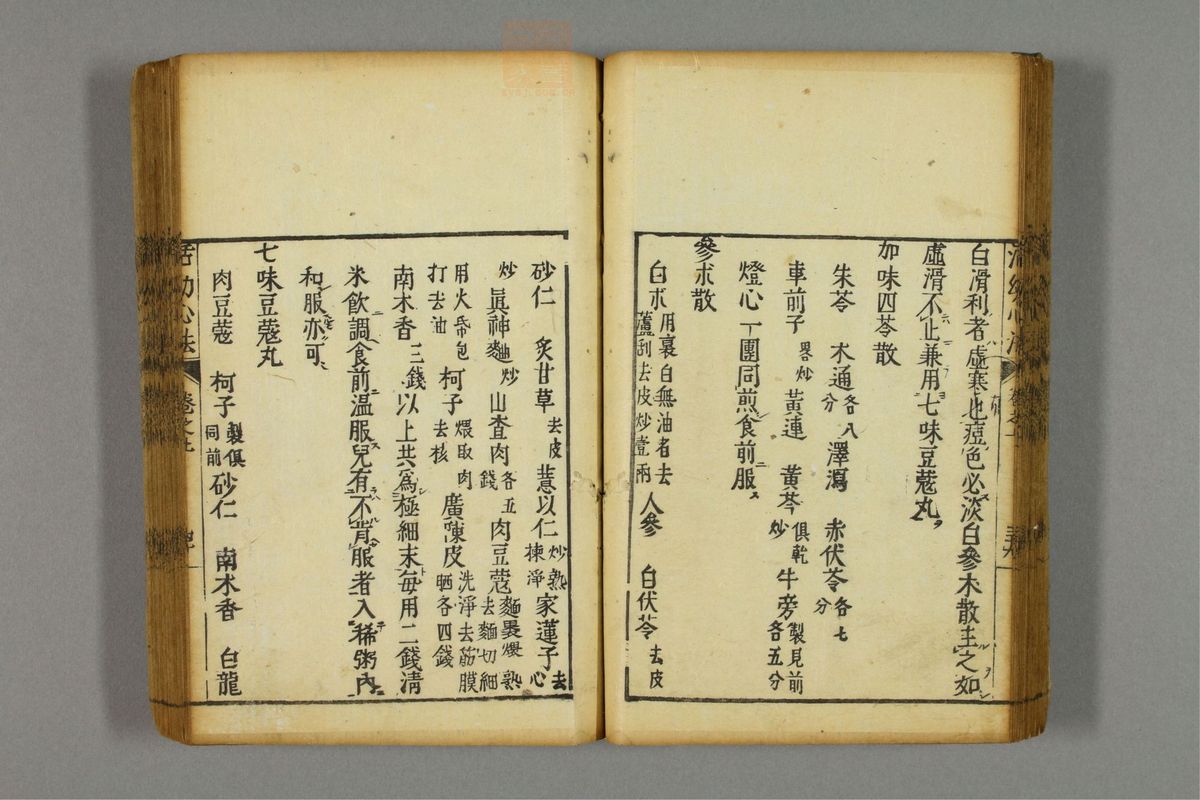 白滑利者虛寒也痘色必淡白參朮散主之如
虛滑不止兼用七味豆蔻丸
加味四苓散
朱苓 木通各八分 澤瀉 赤伏苓各七分
車前子畧炒 黃連 黃芩俱乾炒 牛旁製見前各五分
燈心一團同煎食前服
參朮散
白朮用裏白無油者去蘆刮去皮炒壹兩 人參 白伏苓去皮
砂仁 炙甘草去皮 薏以仁炒熟揀淨 家蓮子去心
炒 眞神麯炒 山查肉各五錢 肉豆蔻麵裹煨熟去麵切細
用火帋包打去油 柯子煨取肉去核 廣陳皮洗淨去筋膜晒各四錢
南木香三錢 以上共為極細末每用二錢清
米飲調食前溫服兒有不肯服者入稀粥內
和服亦可
七味豆蔻丸
肉豆蔻 柯子製俱同前 砂仁 南木香 白龍
活幼心法 卷之七